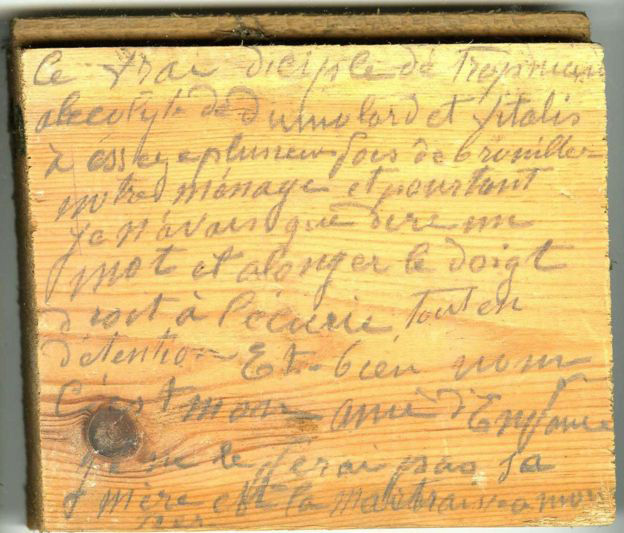 Ce vrai diciple de Tropmann
alecolyte de Dumolard et Vitalis
à ésseye plusieurs fois de brouiller
notre ménage et pourtant
Je n'avais que dire un
mot et alonger le doigt
droit à l'écurie tout en
détention Et bien nom
C'est mon ami d'Enfance
je ne le ferai pas sa
mère est la maitraisse a mon
per